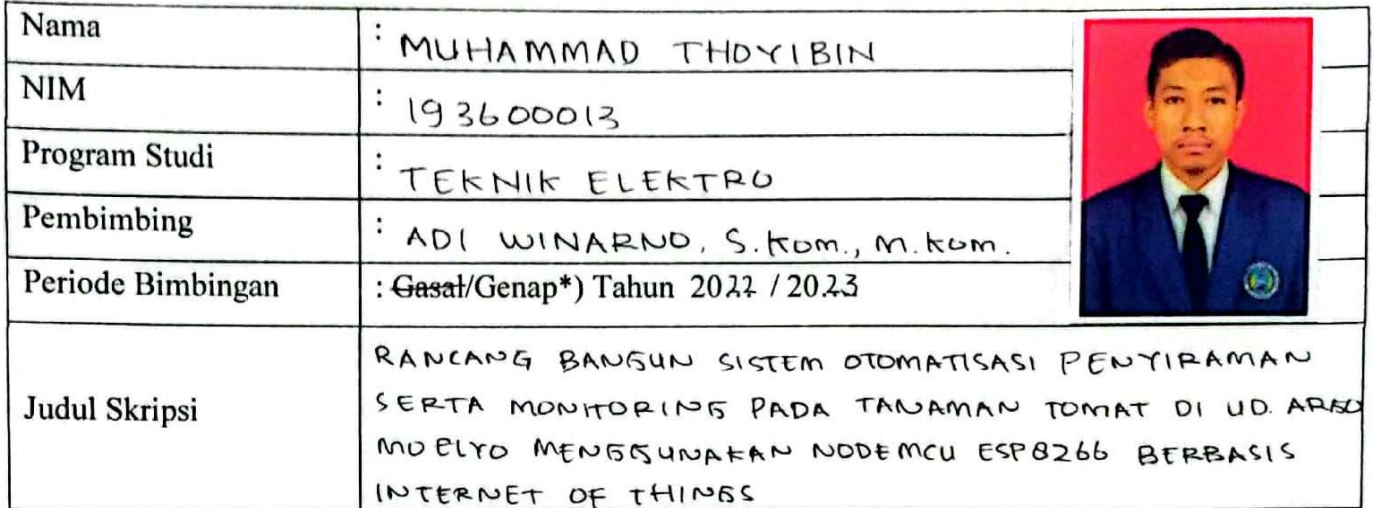 Nama : MUHAMMAD THOYIBIN
NIM : 193600013
Program Studi : TEKNIK ELEKTRO
Pembimbing : ADI WINARNO, S.Kom., M.Kom.
Periode Bimbingan : Gasal/Genap*) Tahun 2022 / 2023
Judul Skripsi
RANCANG BANGUN SISTEM OTOMATISASI PENYIRAMAN
SERTA MONITORING PADA TANAMAN TOMAT DI UD. ARGO
MOELYO MENGGUNAKAN NODEMCU ESP8266 BERBASIS
INTERNET OF THINGS